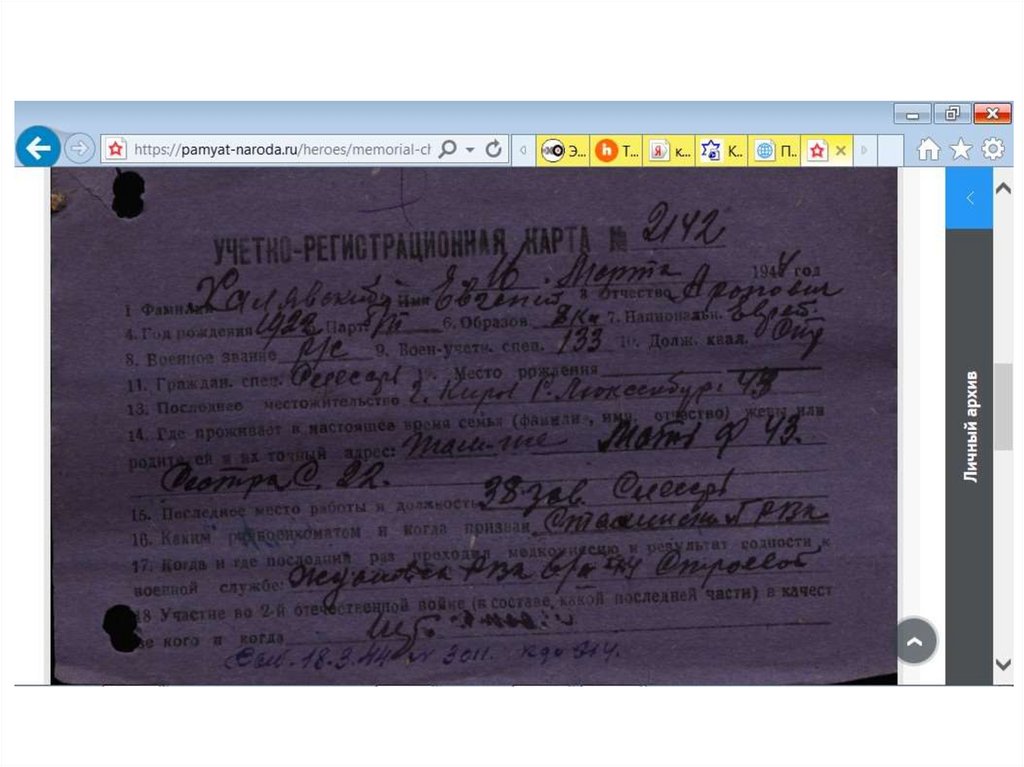 https://pamyat-naroda.ru/heroes/memorial-ch
Э... Т... к... К.. П..
Личный архив
УЧЕТНО-РЕГИСТРАЦИОННАЯ КАРТА № 2142
16 Марта 1944 год
1 Фамилия Халявский Имя Евгений 3 Отчество Аронович
4. Год рождения 1922 Парт 6. Образов. 8 кл 7. Национальн. Еврей.
8. Военное звание р/с 9. Воен-учетн. спец. 133 10. Долж. квал.
11. Граждан. спец. Слесарь 12. Место рождения
13. Последнее местожительство г. Киров Р. Люксембург 43
14. Где проживает в настоящее время семья (фамилия, имя, отчество) жены или
родителей и их точный адрес: Там-же Мать Ф 43.
Сестра С. 22.
15. Последнее место работы и должность 38 зав. Слесарь
16. Каким райвоенкоматом и когда призван Сталинским РВК
17. Когда и где последний раз проходил медкомиссию и результат годности к
военной службе: РВК Строевой
18 Участие во 2-й отечественной войне (в составе какой последней части) в качест
ве кого и когда
18.3.44 № 3011.